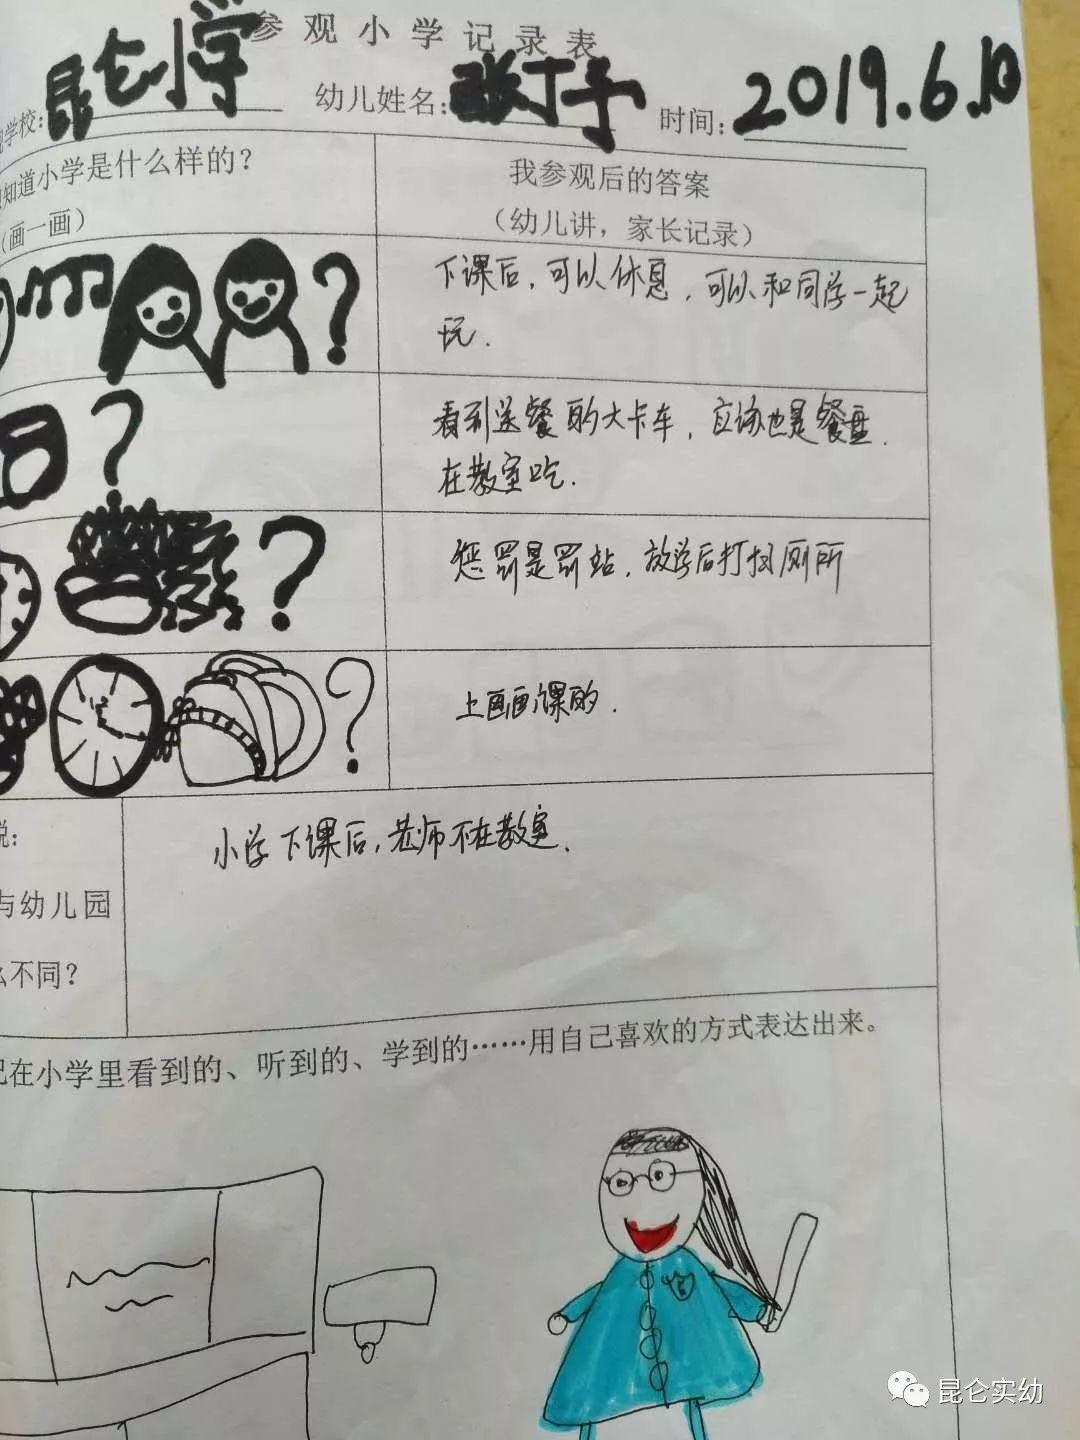 参观小学记录表
学校: 昆仑小学 幼儿姓名: 张丁予 时间: 2019.6.10
知道小学是什么样的？
（画一画）
我参观后的答案
（幼儿讲，家长记录）
？
下课后，可以休息，可以和同学一起
玩.
？
看到送餐的大卡车，应该也是餐盘.
在教室吃.
？
惩罚是罚站，放学后打扫厕所
？
上画画课的.
说:
与幼儿园
么不同？
小学下课后，老师不在教室.
在小学里看到的、听到的、学到的……用自己喜欢的方式表达出来。
昆仑实幼